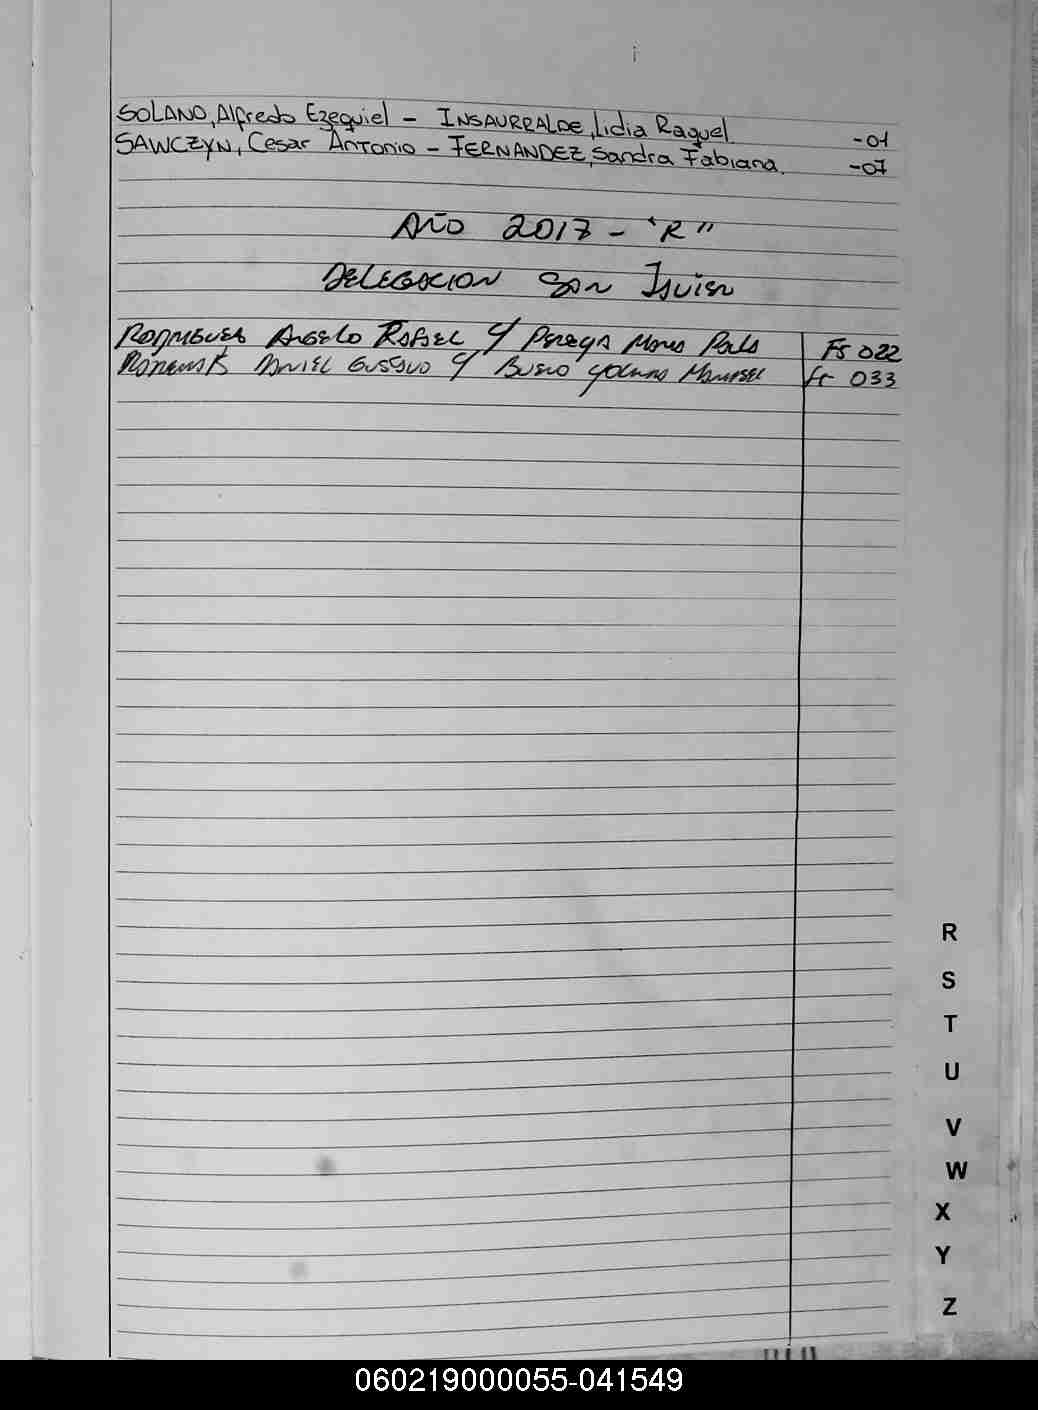 SOLANO, Alfredo Ezequiel - INSAURRALDE, Lidia Raquel. -01
SAWCZYN, Cesar Antonio - FERNANDEZ, Sandra Fabiana. -07
AÑO 2017 - "R"
DELEGACION SAN JAVIER
RODRIGUES ANGELO RAFAEL C/ PEREYRA Maria Paula Fs 022
DANIEL GUSTAVO C/ Fs 033
R
S
T
U
V
W
X
Y
Z
060219000055-041549